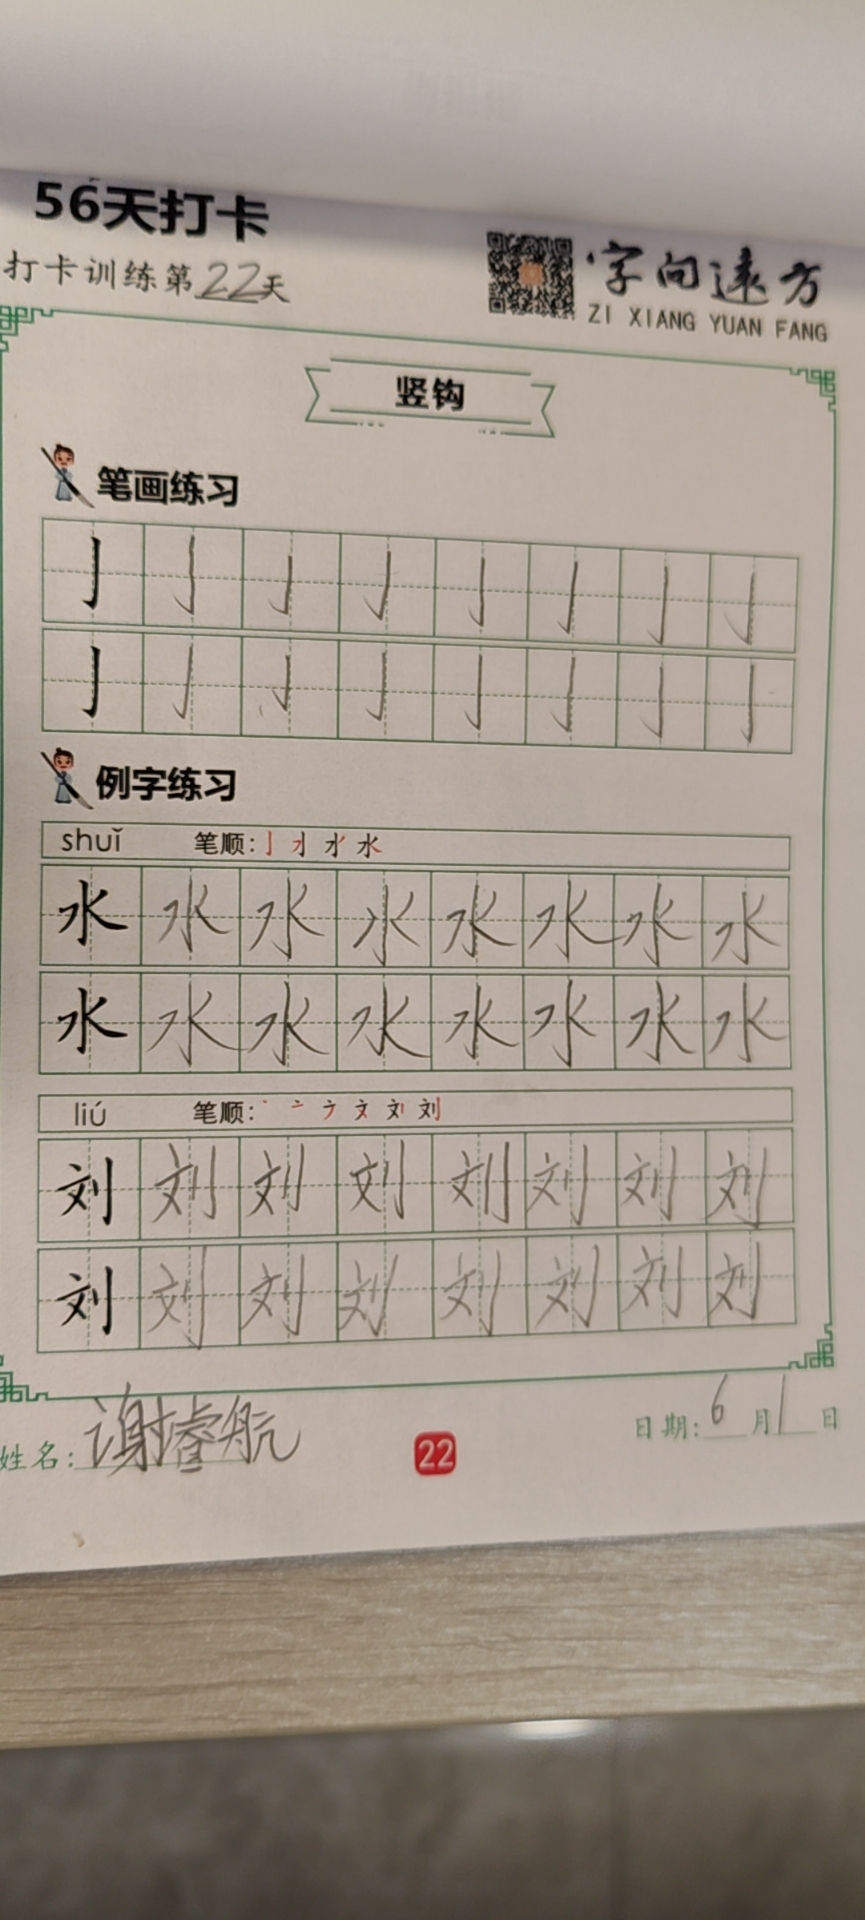 56天打卡
打卡训练第22天
字向远方
ZI XIANG YUAN FANG
竖钩
笔画练习
亅 亅 亅 亅 亅 亅 亅 亅
亅 亅 亅 亅 亅 亅 亅 亅
例字练习
shuǐ 笔顺:
水 水 水 水 水 水 水 水
水 水 水 水 水 水 水 水
liú 笔顺:
刘 刘 刘 刘 刘 刘 刘 刘
刘 刘 刘 刘 刘 刘 刘 刘
姓名:谢睿航
22
日期:6月1日